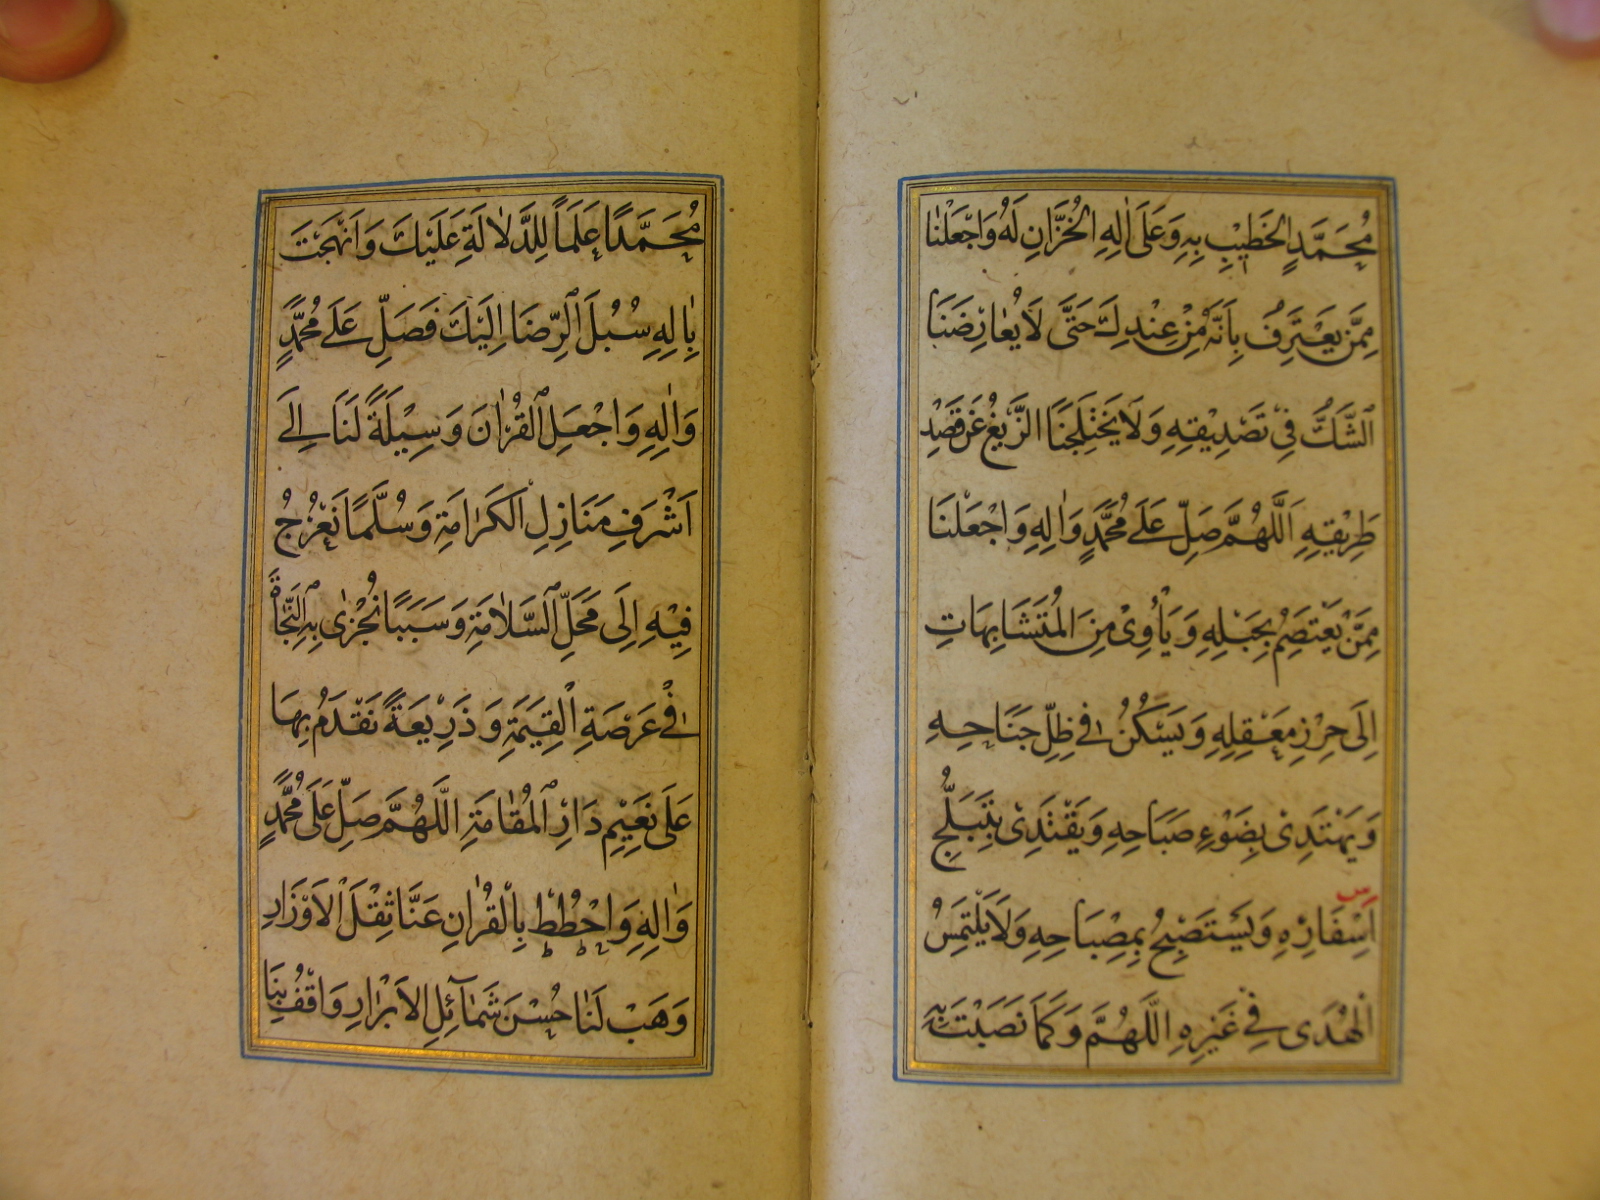 مُحَمَّدٍ الخَطِيْبِ بِهِ وَعَلَى اٰلِهِ الخُزَّانِ لَهُ وَاجْعَلْنٰا
مِمَّنْ يَعْتَرِفُ بِاَنَّهُ مِنْ عِنْدِكَ حَتَّى لَا يُعٰارِضَنَا
الشَّكُّ فِي تَصْدِيْقِهِ وَلَا يَخْتَلِجَنَا الزَّيْغُ عَنْ قَصْدِ
طَرِيْقِهِ اَللّٰهُمَّ صَلِّ عَلَى مُحَمَّدٍ وَاٰلِهِ وَاجْعَلْنَا
مِمَّنْ يَعْتَصِمُ بِحَبْلِهِ وَيَأْوِىْ مِنَ المُتَشَابِهَاتِ
اِلَى حِرْزِ مَعْقِلِهِ وَيَسْكُنُ فِي ظِلِّ جَنَاحِهِ
وَيَهْتَدِىْ بِضَوْءِ صَبَاحِهِ وَيَقْتَدِىْ بِتَبَلُّجِ
اَسْفَارِهِ وَيَسْتَصْبِحُ بِمِصْبَاحِهِ وَلَا يَلْتَمِسُ
الْهُدَى فِيْ غَيْرِهِ اَللّٰهُمَّ وَكَمَا نَصَبْتَ بِهِ
مُحَمَّدًا عَلَمًا لِلدَّلٰالَةِ عَلَيْكَ وَاَنْهَجْتَ
بِاٰلِهِ سُبُلَ الرِّضَا اِلَيْكَ فَصَلِّ عَلَى مُحَمَّدٍ
وَاٰلِهِ وَاجْعَلِ القُرْاٰنَ وَسِيْلَةً لَنَا اِلَى
اَشْرَفِ مَنَازِلِ الكَرٰامَةِ وَسُلَّمًا نَعْرُجُ
فِيْهِ اِلَى مَحَلِّ السَّلٰامَةِ وَسَبَبًا نُجْزٰى بِهِ النَّجَاةَ
فِيْ عَرْصَةِ الْقِيٰمَةِ وَذَرِيْعَةً نَقْدَمُ بِهَا
عَلَى نَعِيْمِ دَارِ المُقٰامَةِ اَللّٰهُمَّ صَلِّ عَلَى مُحَمَّدٍ
وَاٰلِهِ وَاحْطُطْ بِالْقُرْاٰنِ عَنَّا ثِقْلَ الْاَوْزَارِ
وَهَبْ لَنٰا حُسْنَ شَمٰآئِلِ الاَبْرٰارِ وَاقْفُ بِنَا